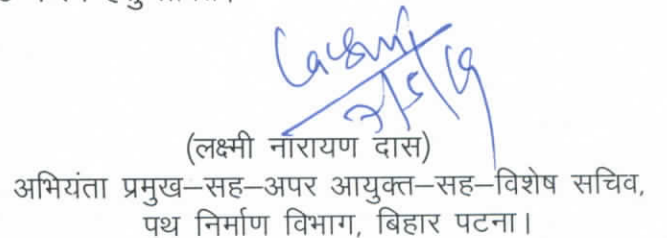 Laxmi
(लक्ष्मी नारायण दास)
अभियंता प्रमुख–सह–अपर आयुक्त–सह–विशेष सचिव,
पथ निर्माण विभाग, बिहार पटना।